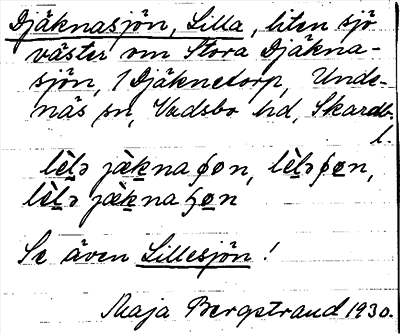 Djäknasjön, Lilla, liten sjö
väster om Stora Djäkna-
sjön, 1 Djäknetorp, Unde-
näs sn, Vadsbo hd, Skarab.
l.
lèlə jäkna ɸøn, lèləɸøn,
lèlə jäkna ɧøn
Se även Lillesjön!
Maja Bergstrand 1930.